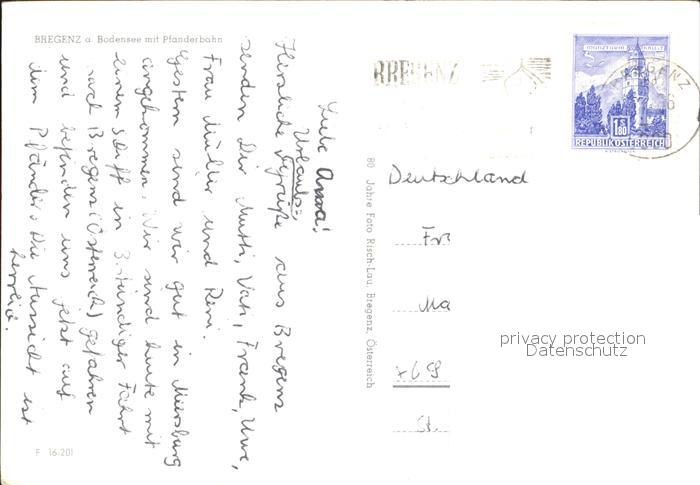 BREGENZ a. Bodensee mit Pfänderbahn
Liebe Anna!
Herzliche Urlaubs=
grüße aus Bregenz
senden Dir Mutti, Vati, Frank, Uwe,
Frau Müller und Reni.
Gestern sind wir gut in Meersburg
angekommen. Wir sind heute mit
einem Schiff in 3.stündiger Fahrt
nach Bregenz (Österreich) gefahren
und befinden uns jetzt auf
dem Pfänder. Die Aussicht ist
herrlich.
F 16/201
80 Jahre Foto Risch-Lau, Bregenz, Österreich
BREGENZ
MÜNZTURM HALL i. T.
1 S 80
REPUBLIK ÖSTERREICH
BREGENZ
Deutschland
Fr
Ma
St.
privacy protection
Datenschutz